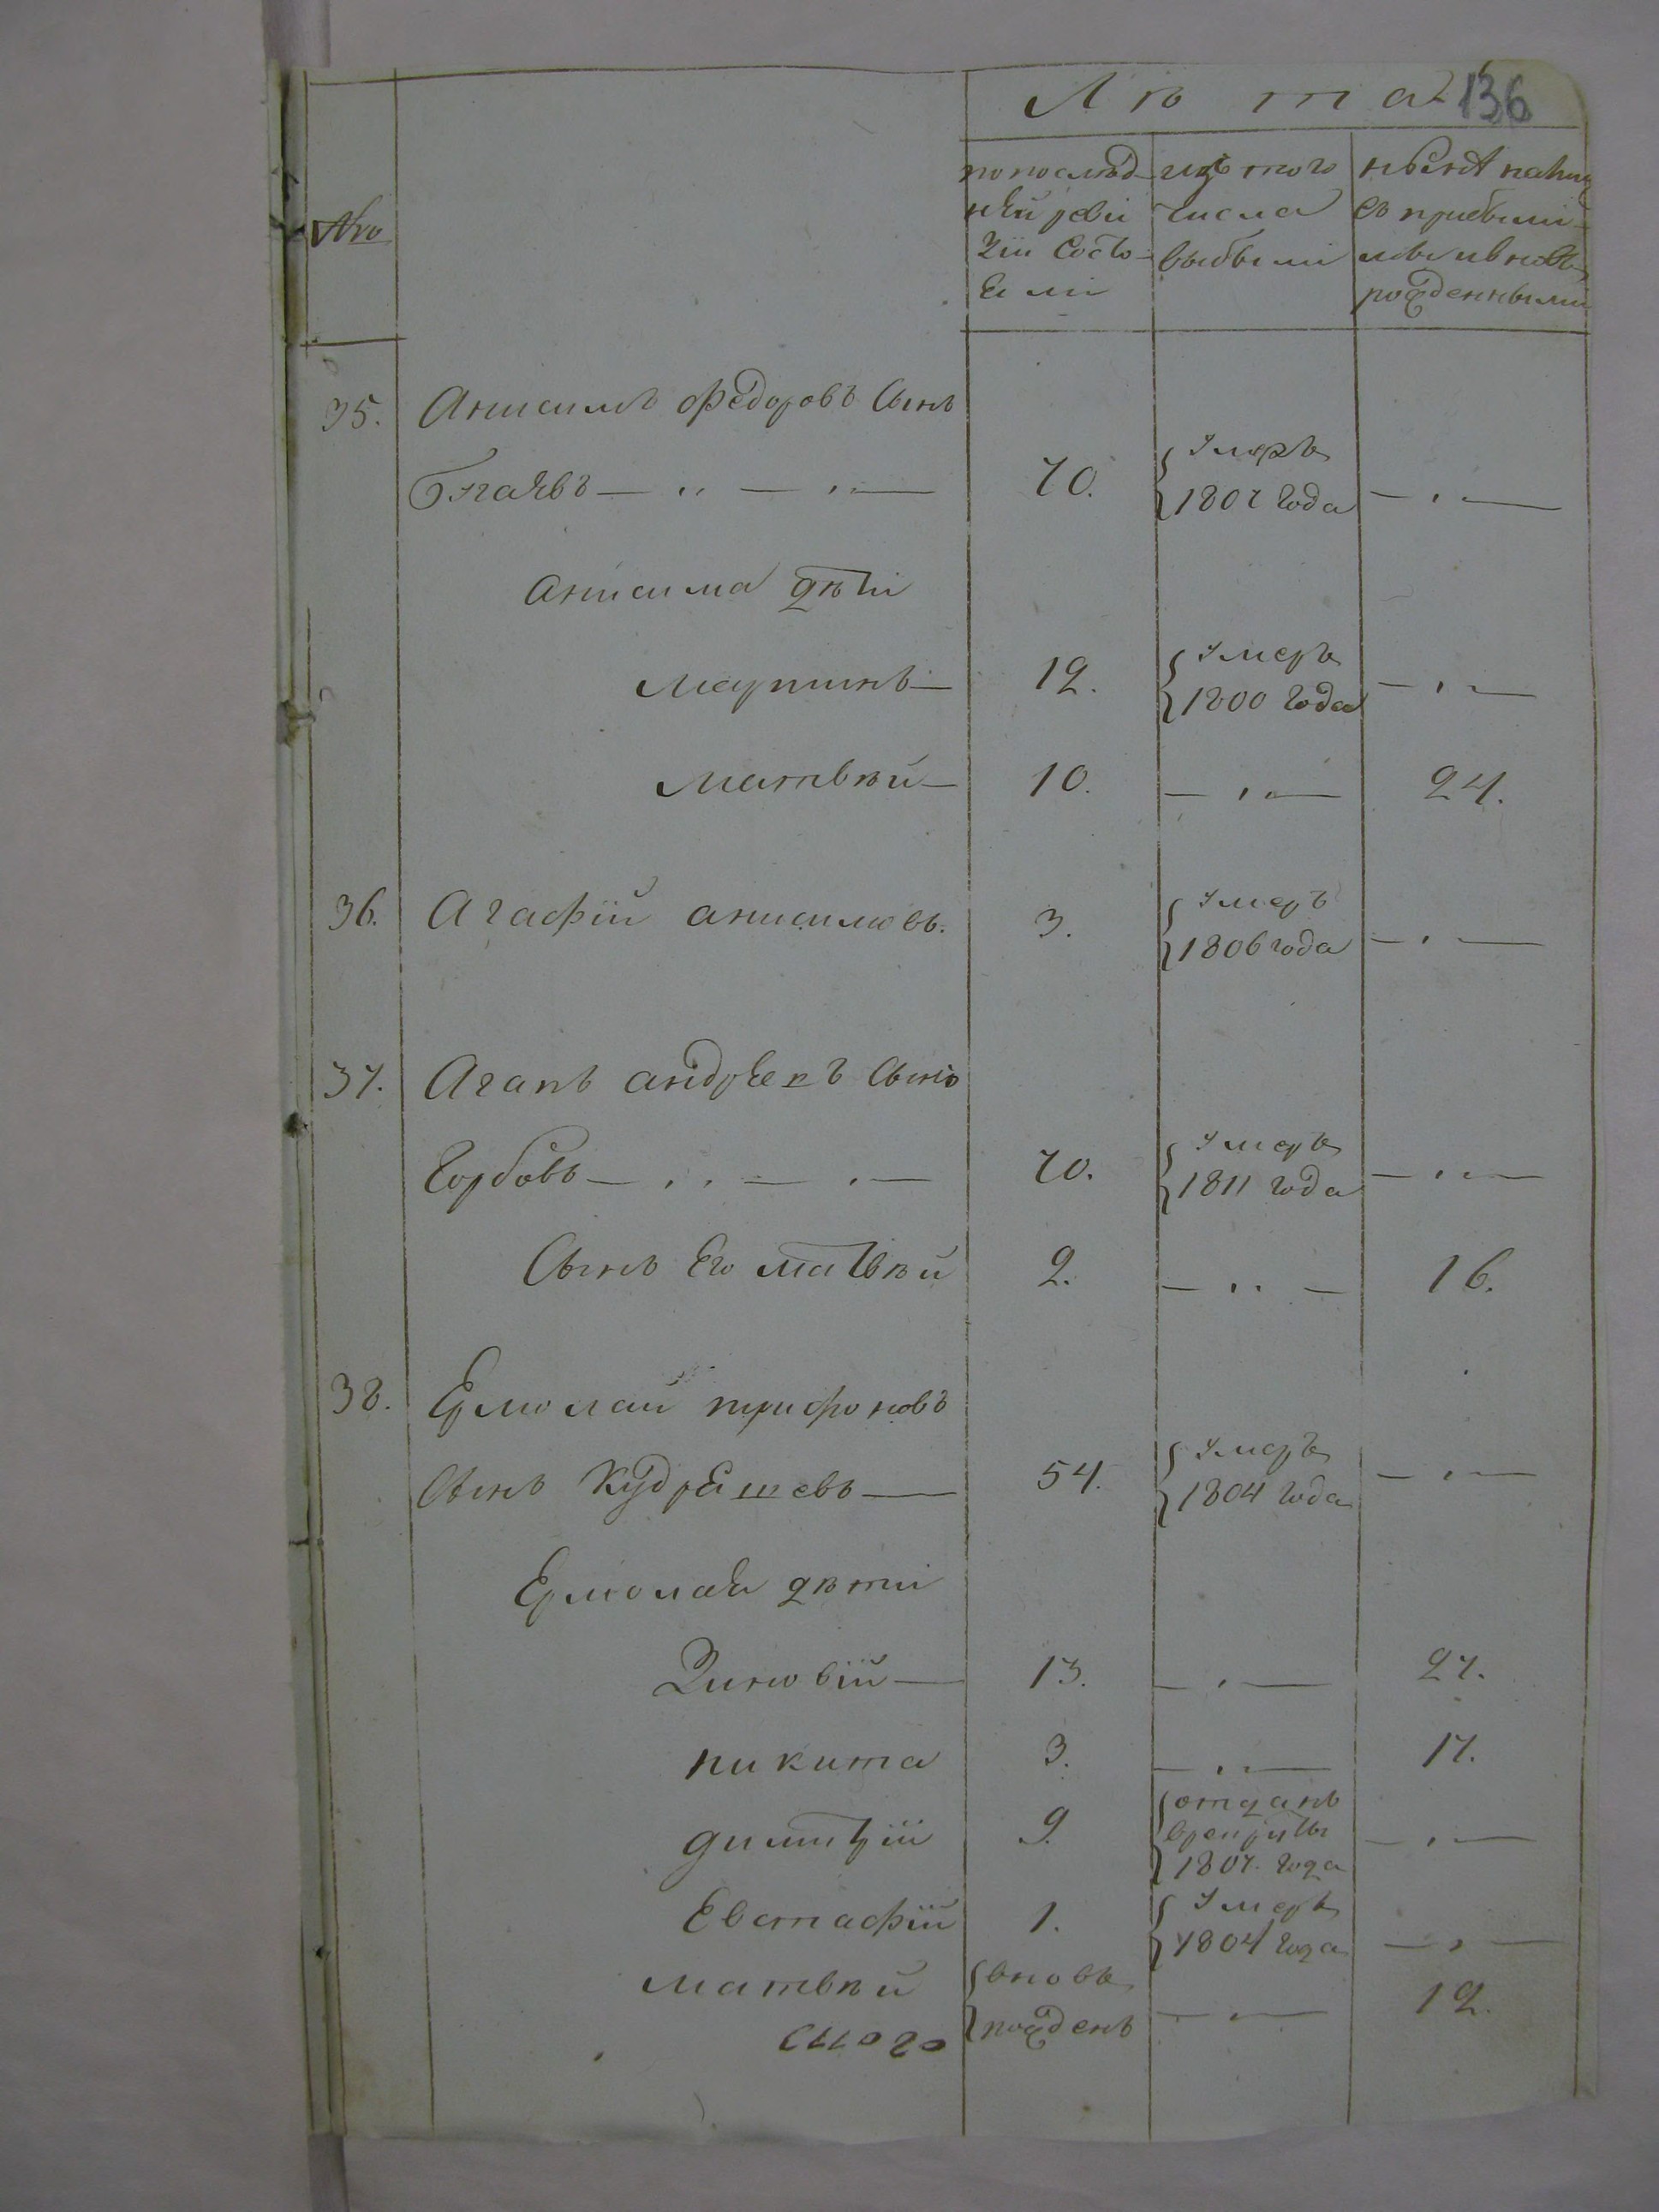 Лѣта 136
№
по послѣд-
ней реви
зіи состо-
яли
изъ того
числа
выбыли
нынѣ на лицо
съ прибылі-
ми и вновь
рожденными
35. Анисимъ Федоровъ Сынъ
70. Умеръ
1807 года
Анисима дѣти
Мартинъ 12. Умеръ
1800 года
Матвѣй 10. 24.
36. Агафій Анисимовъ. 3. Умеръ
1806 года
37. Агапъ Андреевъ Сынъ
Горбовъ 70. Умеръ
1811 года
Сынъ Его Матвѣй 2. 16.
38. Ермолай Трифоновъ
Сынъ Кудряшевъ 54. Умеръ
1804 года
Ермолая дѣти
Зиновій 13. 27.
Никита 3. 17.
Димитрій 9. отданъ
врекруты
1807. года
Евстафій 1. Умеръ
1804 года
Матвѣй вновь
рожденъ 12.